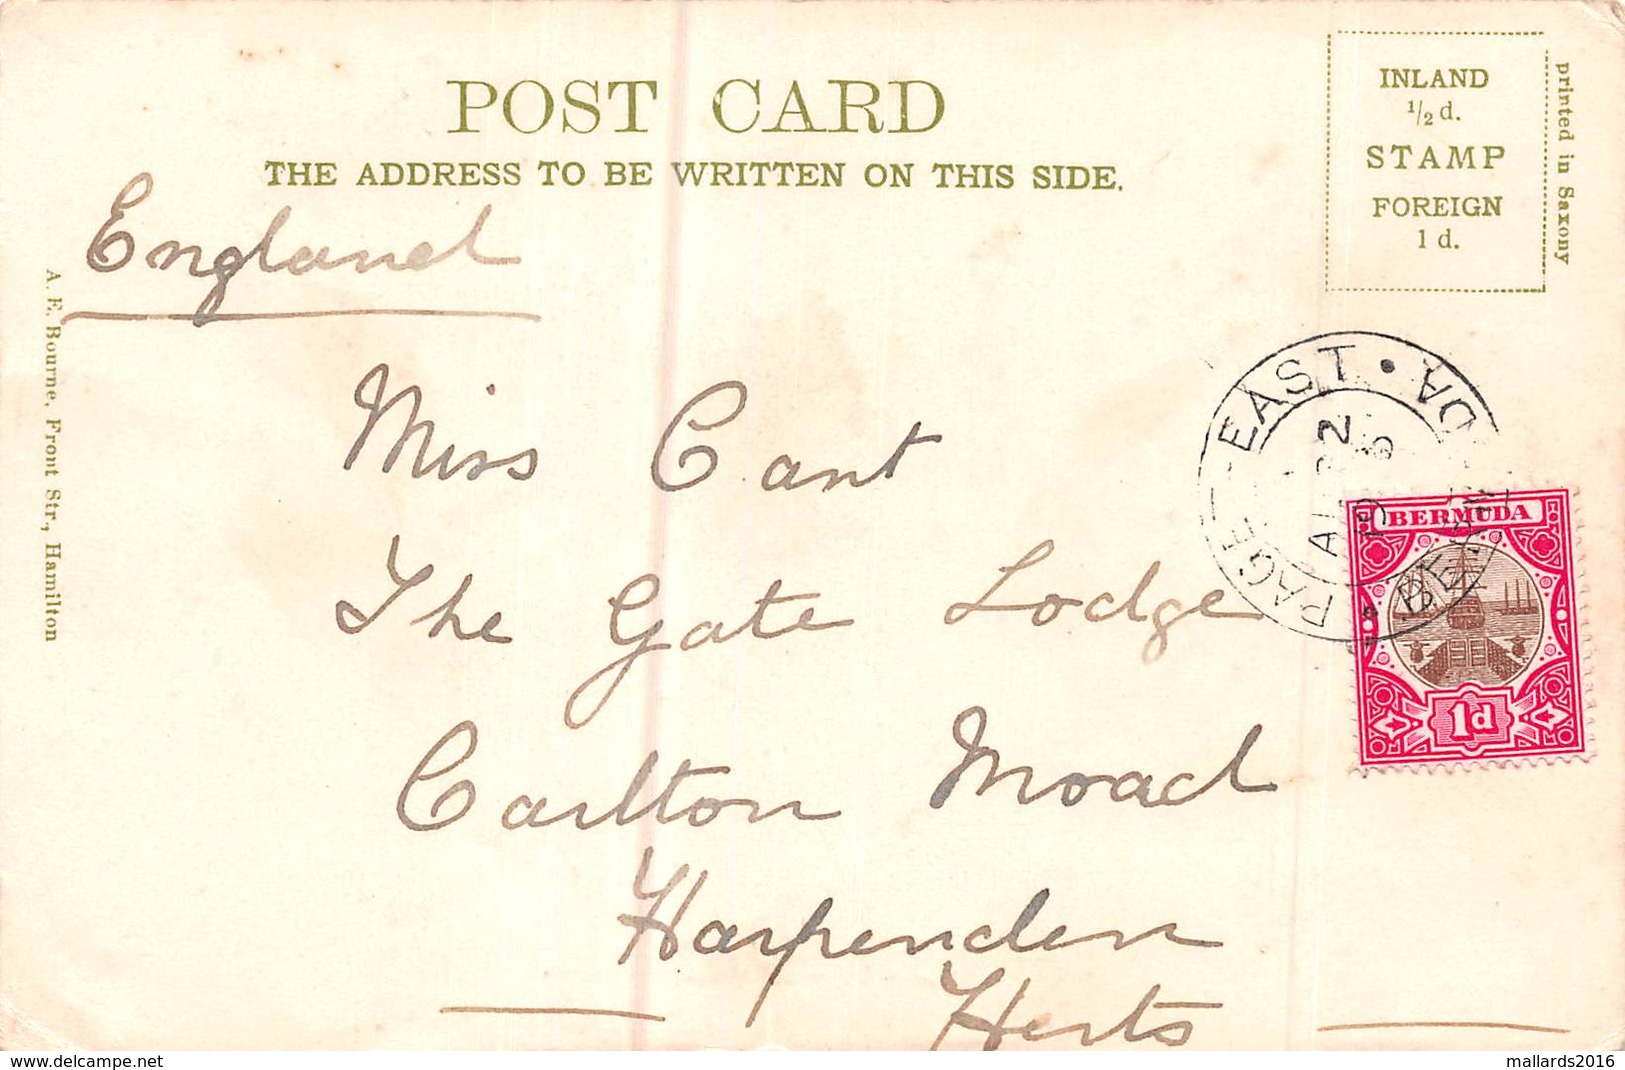 POST CARD
THE ADDRESS TO BE WRITTEN ON THIS SIDE.
INLAND
1/2 d.
STAMP
FOREIGN
1 d.
printed in Saxony
A. E. Bourne, Front Str., Hamilton
England
Miss Cant
The Gate Lodge
Carlton Road
Harpenden
Herts
PAGET EAST • BERMUDA
BERMUDA
1d
www.delcampe.net
mallards2016